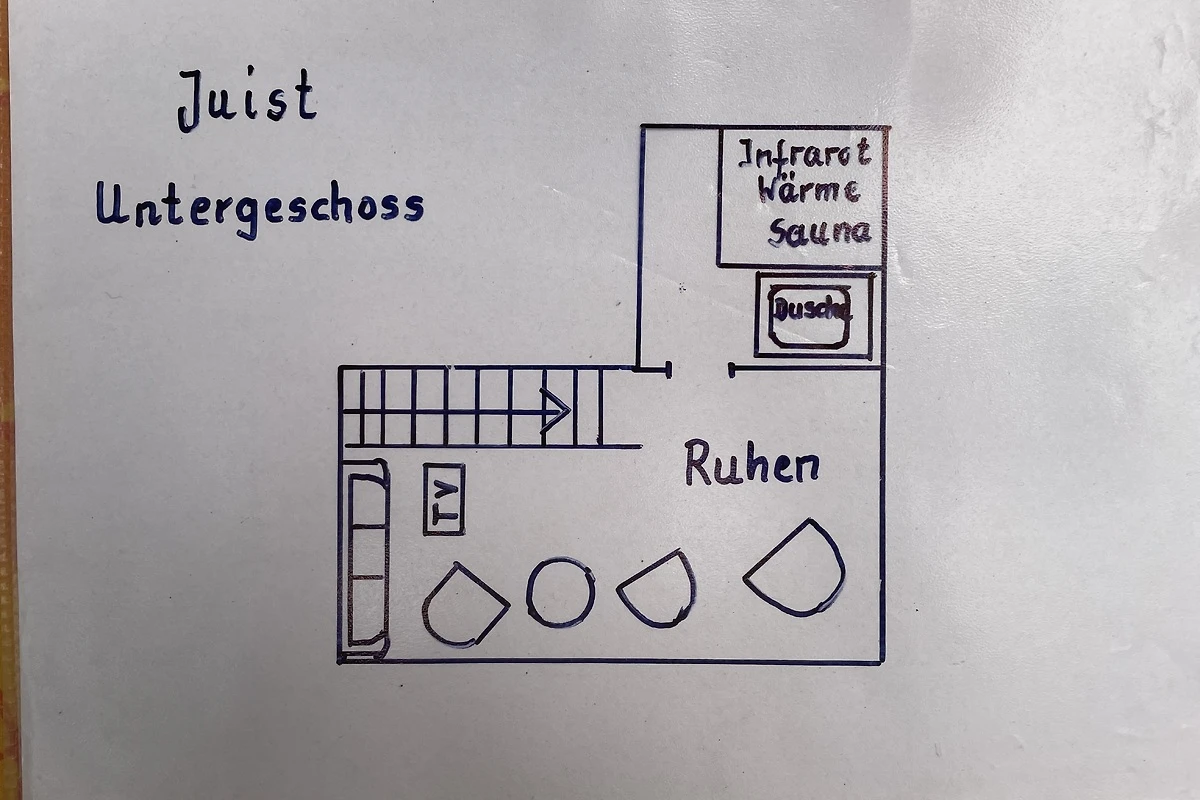 Juist
Untergeschoss
Infrarot
Wärme
Sauna
Dusche
Ruhen
TV